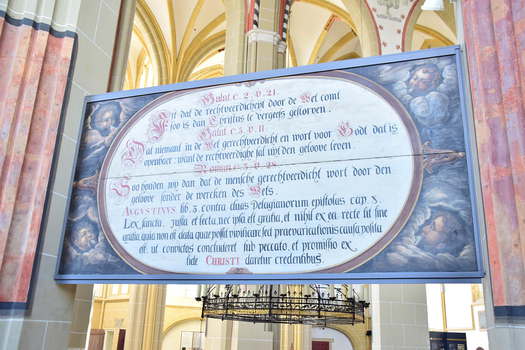 Galat. C. 2. V. 21.
Jst dat de rechtveerdicheyt door de Wet comt
soo is dan Christus te vergeefs gestorven.
Galat. C. 3. V. 11
Dat niemant in de Wet gerechtveerdicht en wort voor Godt dat is
openbaer: want de rechtveerdighe sal uyt den geloove leven.
Roman. C. 3. V. 28
Soo houden wij dan dat de mensche gerechtveerdicht wort door den
geloove sonder de wercken des Wets.
AUGUSTINUS lib. 3. contra duas Pelagianorum epistolas cap. 8.
Lex sancta, justa, et recta, nec ipsa est gratia, et nihil ex ea recte fit sine
gratia, quia non est data quae possit vivificare sed praevaricationis causa posita
est, ut convictos concluderet sub peccato, et promissio ex
fide CHRISTI daretur credentibus.